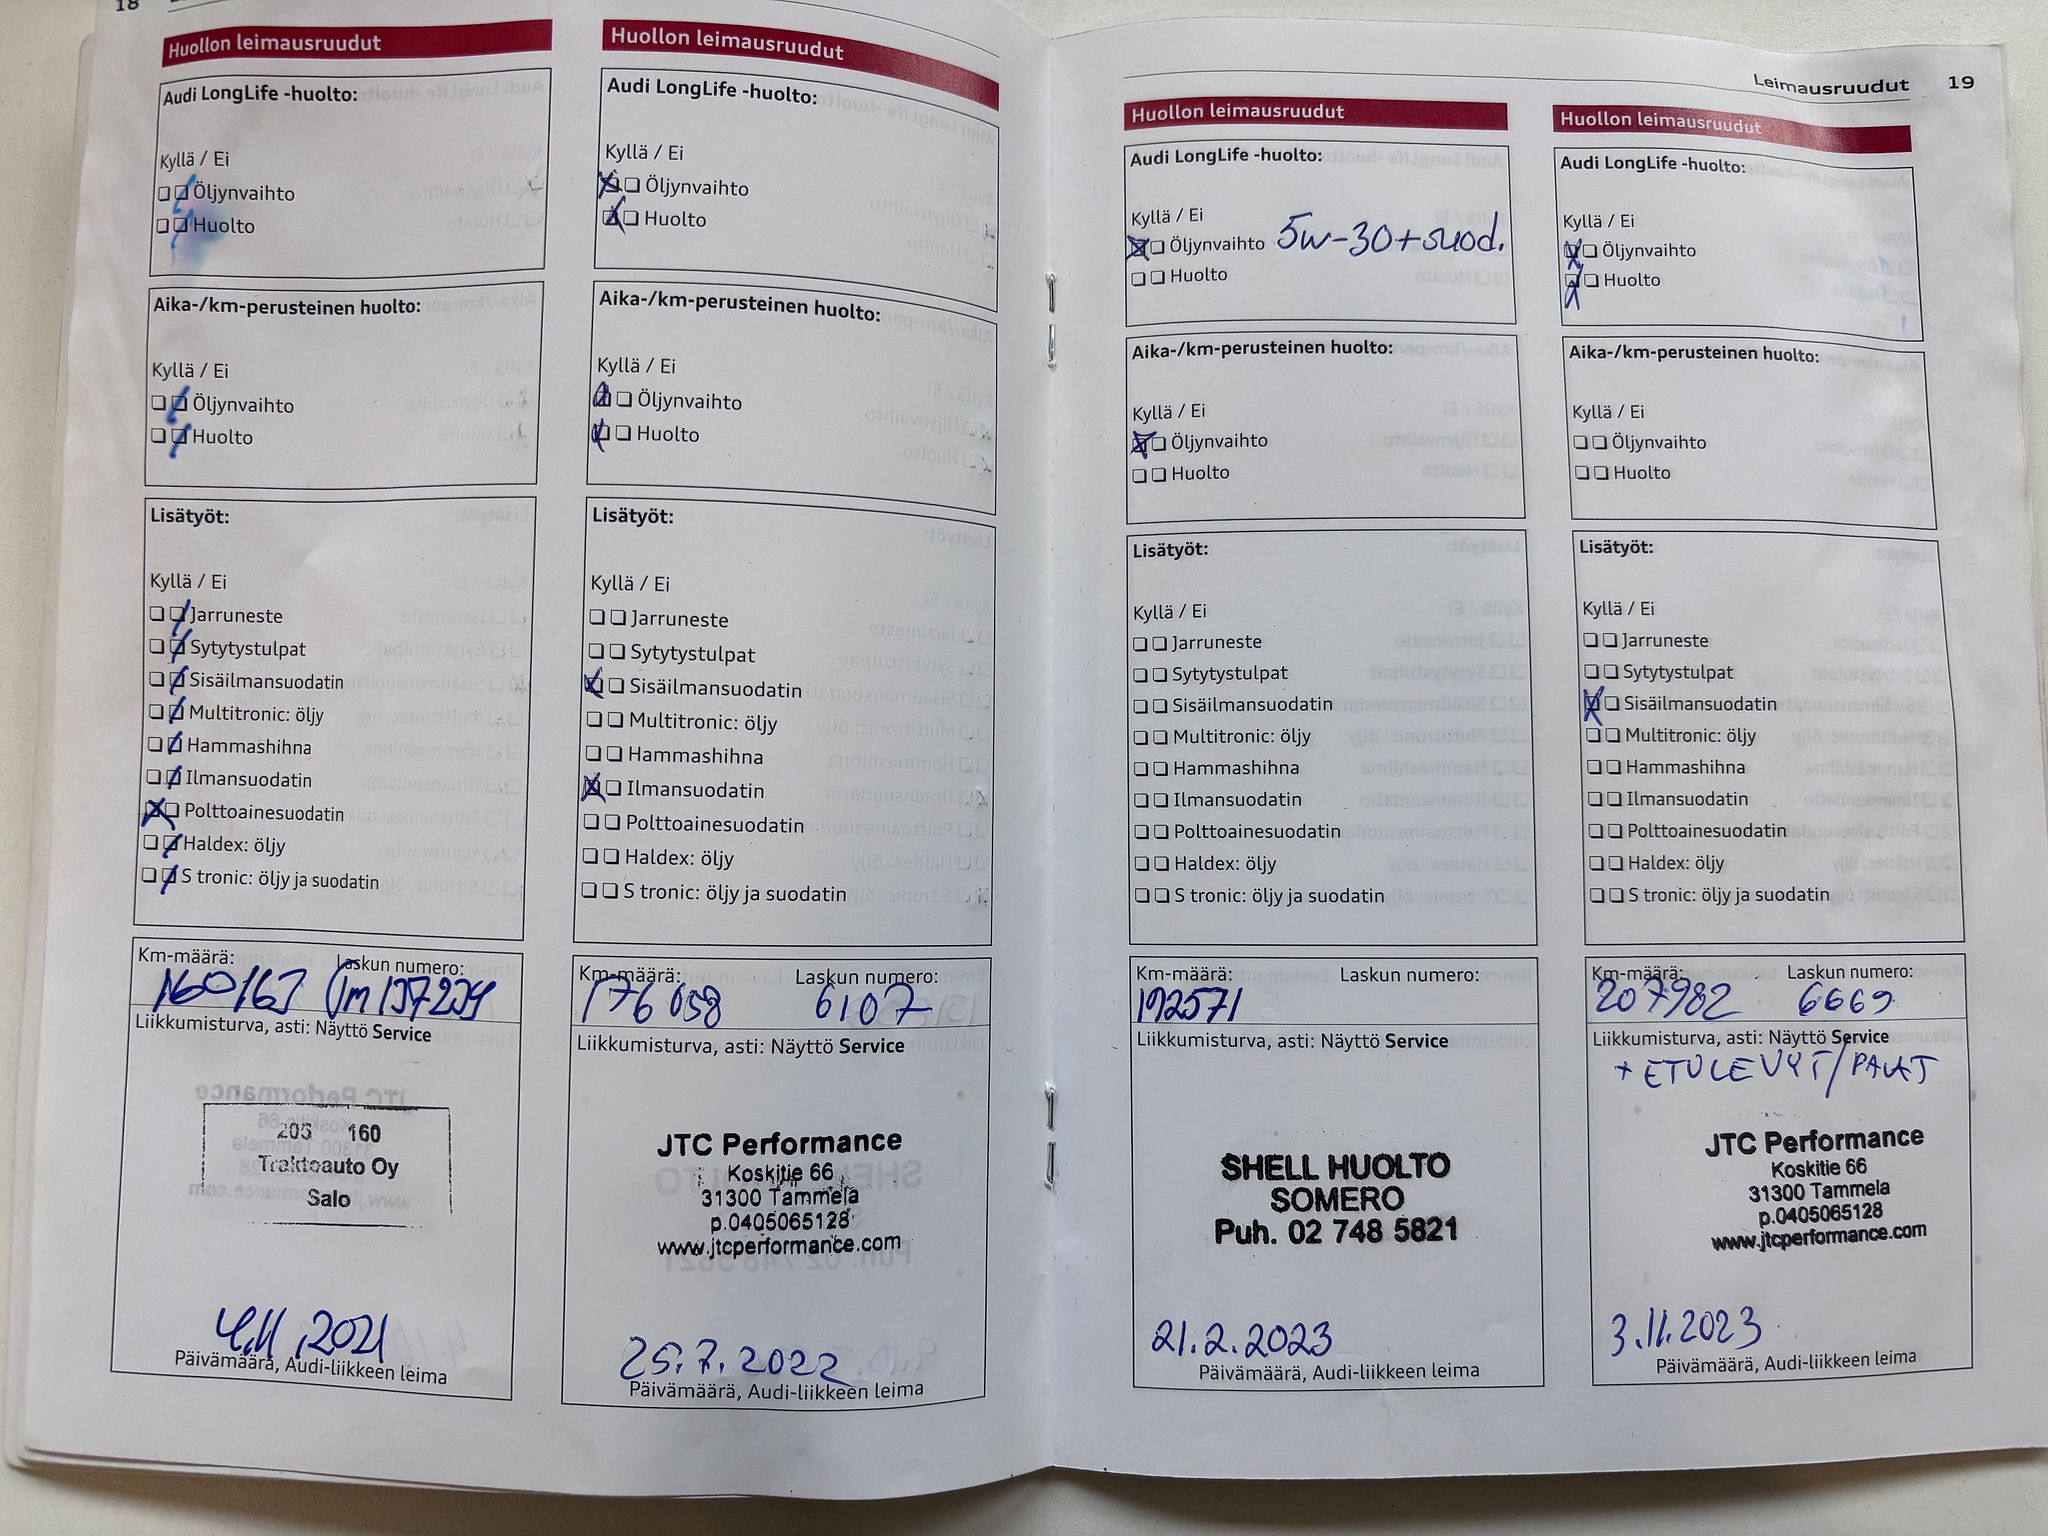 18
Huollon leimausruudut
Audi LongLife -huolto:
Kyllä / Ei
Öljynvaihto
Huolto
Aika-/km-perusteinen huolto:
Kyllä / Ei
Öljynvaihto
Huolto
Lisätyöt:
Kyllä / Ei
Jarruneste
Sytytystulpat
Sisäilmansuodatin
Multitronic: öljy
Hammashihna
Ilmansuodatin
Polttoainesuodatin
Haldex: öljy
S tronic: öljy ja suodatin
Km-määrä: Laskun numero:
Liikkumisturva, asti: Näyttö Service
205 160
Traktoauto Oy
Salo
4.11.2021
Päivämäärä, Audi-liikkeen leima
Huollon leimausruudut
Audi LongLife -huolto:
Kyllä / Ei
Öljynvaihto
Huolto
Aika-/km-perusteinen huolto:
Kyllä / Ei
Öljynvaihto
Huolto
Lisätyöt:
Kyllä / Ei
Jarruneste
Sytytystulpat
Sisäilmansuodatin
Multitronic: öljy
Hammashihna
Ilmansuodatin
Polttoainesuodatin
Haldex: öljy
S tronic: öljy ja suodatin
Km-määrä: Laskun numero:
176 058 6107
Liikkumisturva, asti: Näyttö Service
JTC Performance
Koskitie 66
31300 Tammela
p.0405065128
www.jtcperformance.com
25.7.2022
Päivämäärä, Audi-liikkeen leima
Leimausruudut 19
Huollon leimausruudut
Audi LongLife -huolto:
Kyllä / Ei
Öljynvaihto 5w-30+suod.
Huolto
Aika-/km-perusteinen huolto:
Kyllä / Ei
Öljynvaihto
Huolto
Lisätyöt:
Kyllä / Ei
Jarruneste
Sytytystulpat
Sisäilmansuodatin
Multitronic: öljy
Hammashihna
Ilmansuodatin
Polttoainesuodatin
Haldex: öljy
S tronic: öljy ja suodatin
Km-määrä: Laskun numero:
192571
Liikkumisturva, asti: Näyttö Service
SHELL HUOLTO
SOMERO
Puh. 02 748 5821
21.2.2023
Päivämäärä, Audi-liikkeen leima
Huollon leimausruudut
Audi LongLife -huolto:
Kyllä / Ei
Öljynvaihto
Huolto
Aika-/km-perusteinen huolto:
Kyllä / Ei
Öljynvaihto
Huolto
Lisätyöt:
Kyllä / Ei
Jarruneste
Sytytystulpat
Sisäilmansuodatin
Multitronic: öljy
Hammashihna
Ilmansuodatin
Polttoainesuodatin
Haldex: öljy
S tronic: öljy ja suodatin
Km-määrä: Laskun numero:
207982 6669
Liikkumisturva, asti: Näyttö Service
+ ETULEVYT/PALAT
JTC Performance
Koskitie 66
31300 Tammela
p.0405065128
www.jtcperformance.com
3.11.2023
Päivämäärä, Audi-liikkeen leima